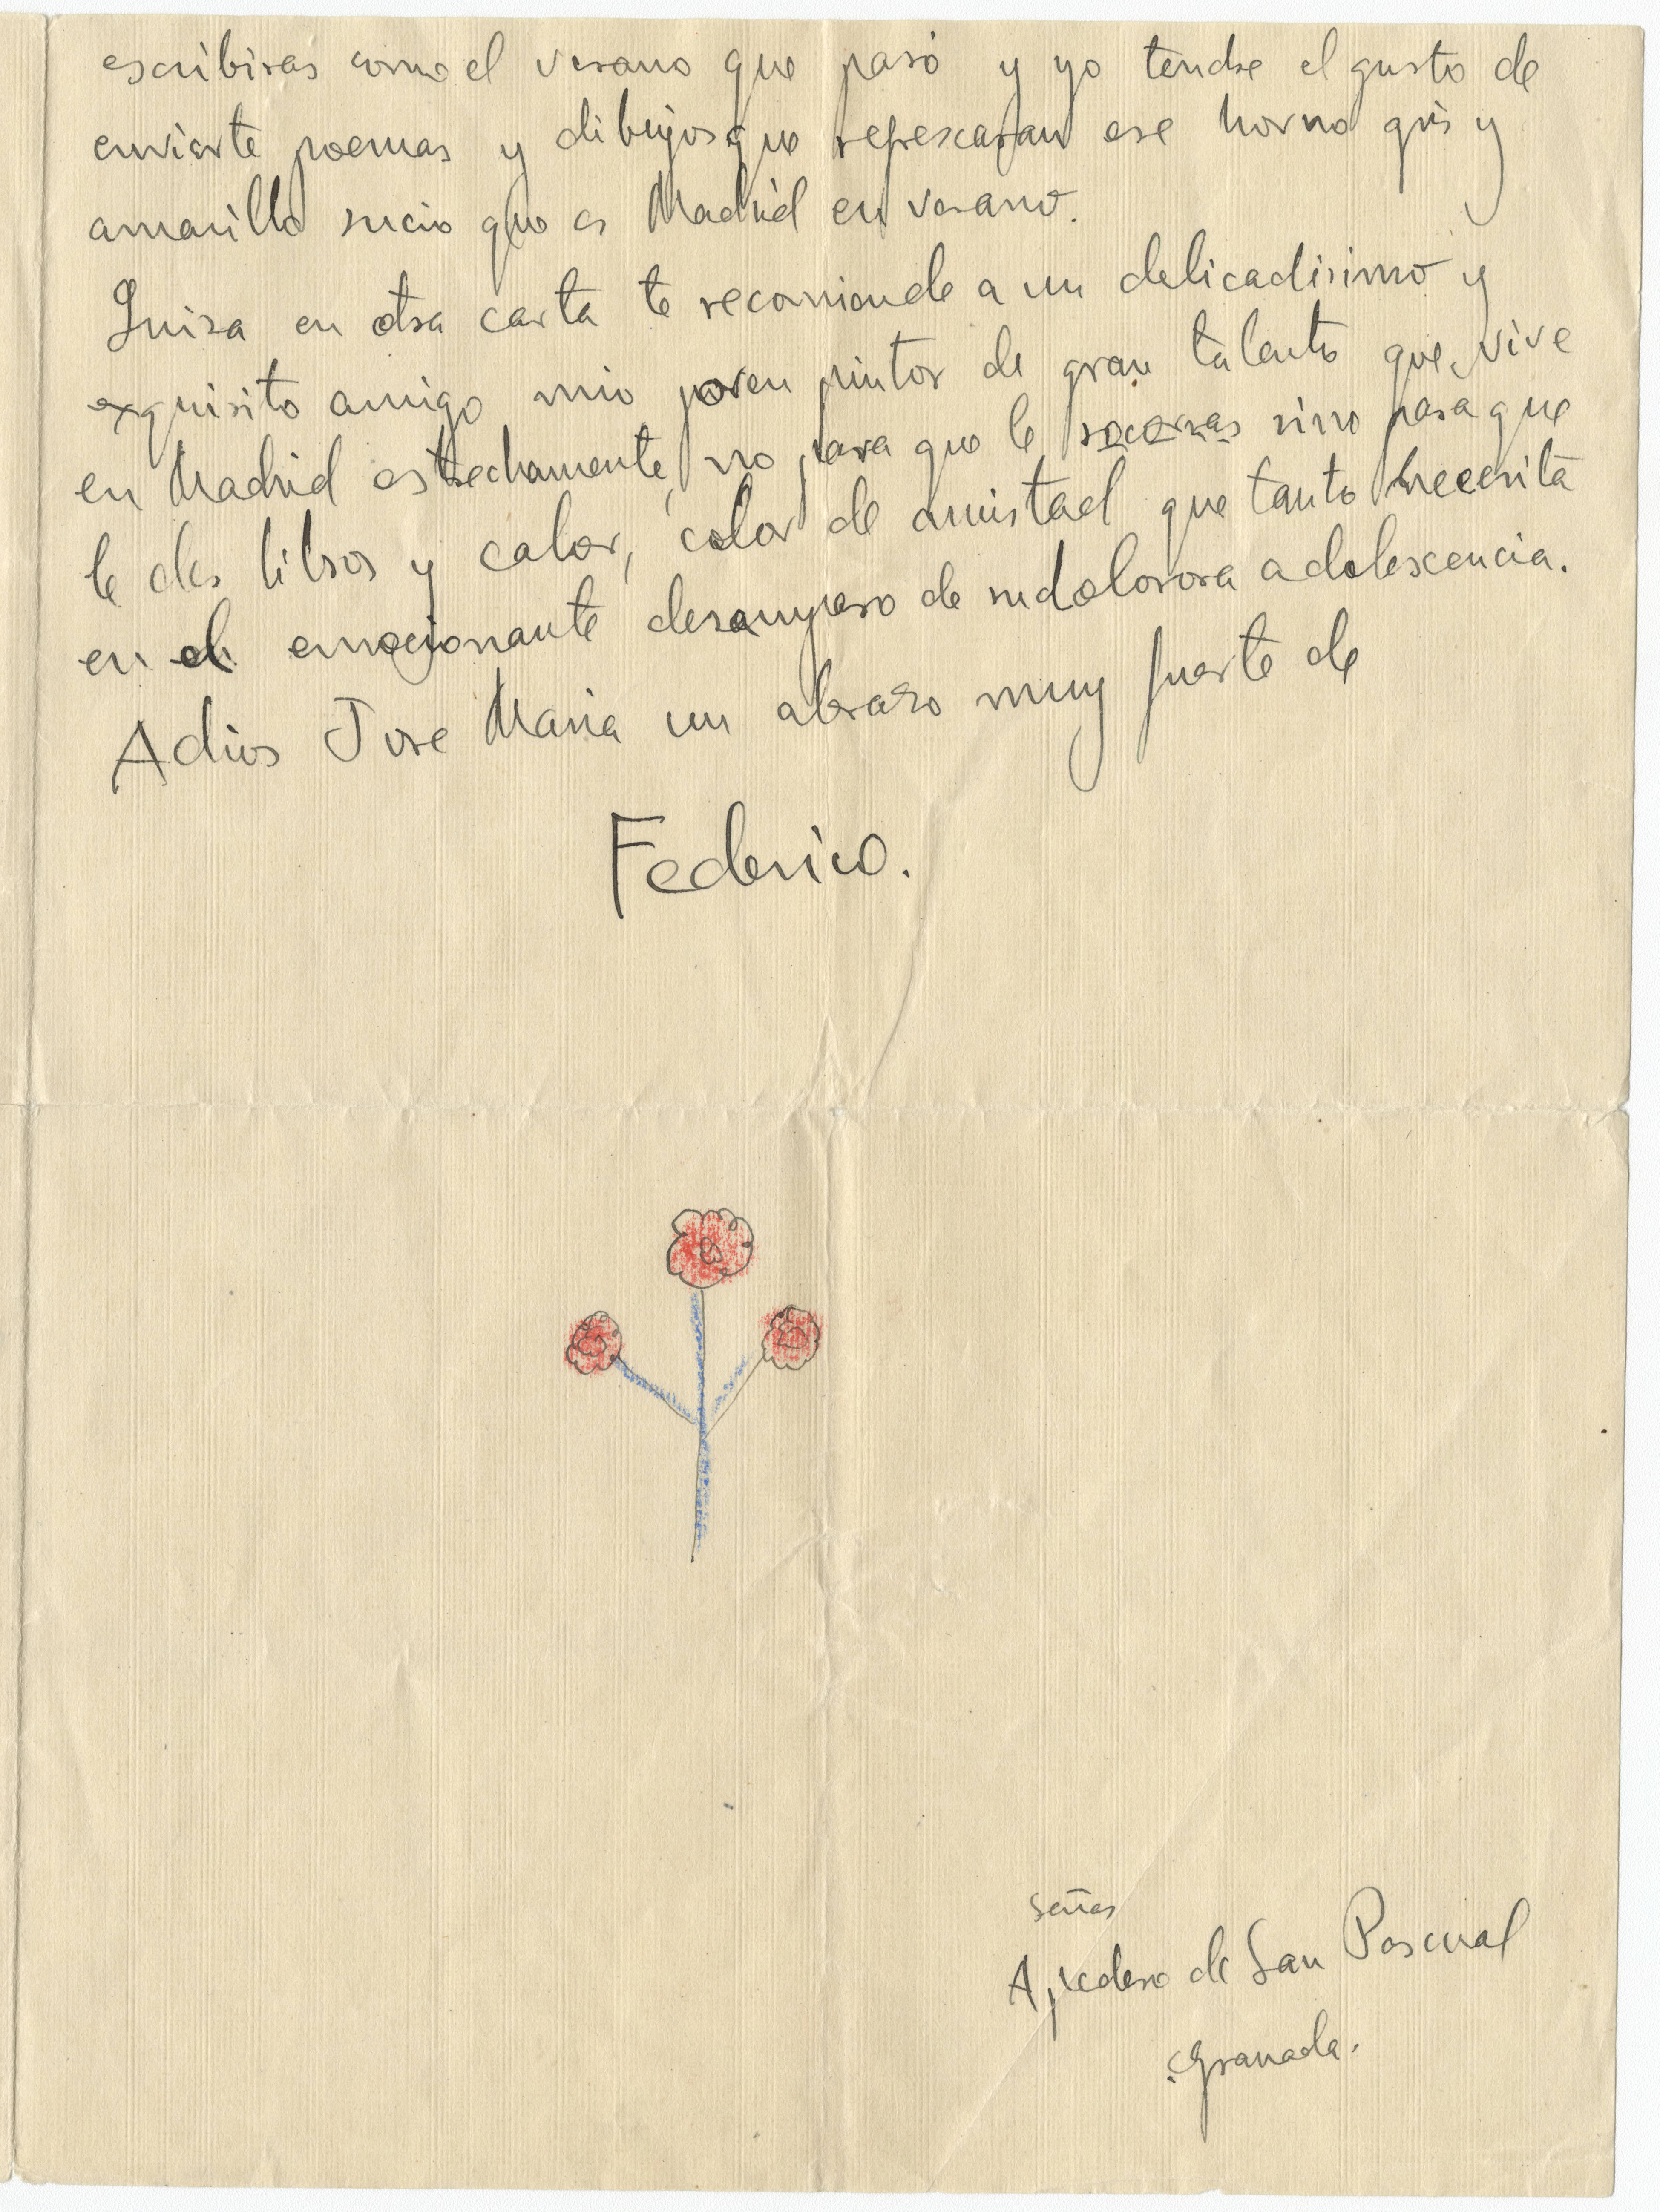 escribiras como el verano que pasó y yo tendre el gusto de
enviarte poemas y dibujos que refrescaran ese horno gris y
amarillo sucio que es Madrid en verano.
Quiza en otra carta te recomiende a un delicadisimo y
exquisito amigo mio joven pintor de gran talento que vive
en Madrid estrechamente, no para que le socorras sino para que
le des libros y calor, calor de amistad que tanto necesita
en el emocionante desamparo de su dolorosa adolescencia.
Adios Jose Maria un abrazo muy fuerte de
Federico.
Señas
Apeadero de San Pascual
Granada.